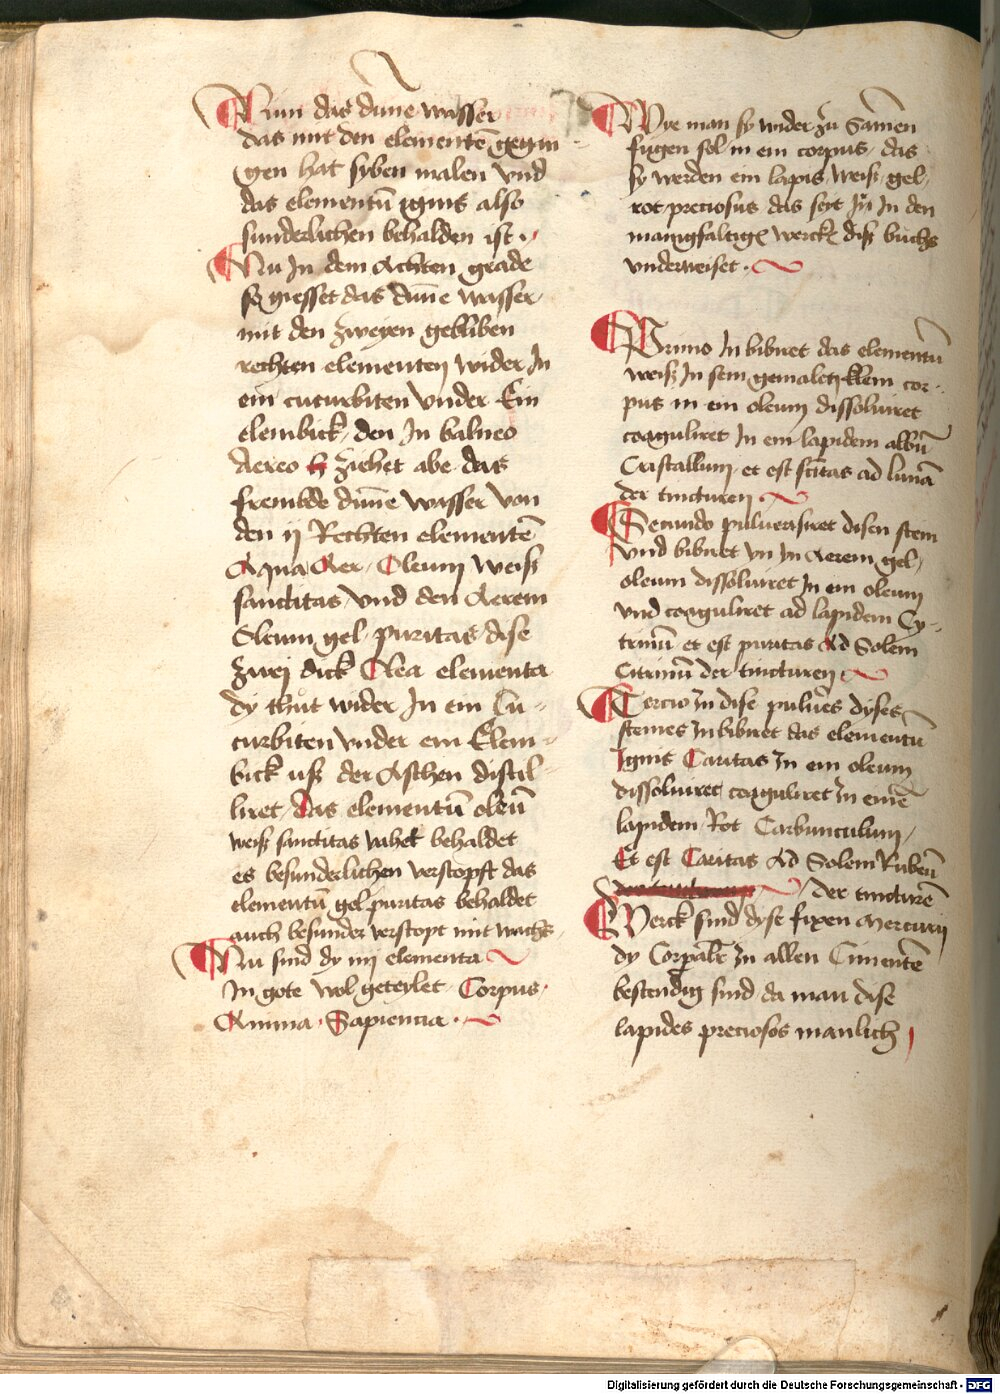 Nun das dune wasser
das mit den elementē gegan
gen hat syben malen vnd
das elementū ignis also
sunderlichen behalden ist
Nu In dem Achten grade
so giesset das dūne wasser
mit den zweyen gebliben
rechten elementen wider In
ein cucurbiten vnder Ein
elembick, den In balneo
Aereo ziehet abe das
frembde dūne wasser von
den ij Rechten elementē
Aqua Aer Oleum weiß
sanctitas vnd den Aerem
Oleum gel puritas dise
zwei dick Olea elementa
dy thut wider In ein Cu-
curbiten vnder ein Elem-
bick uß der Aschen distil-
liret, das elementū oleū
weiß sanctitas vahet behaldet
es besunderlichen verstopft das
elementū gel puritas behaldet
auch besunder verstopt mit wachs
Nu sind dy iiij elementa
In gote wol geteylet Corpus
Anima Sapiencia
Wye man sy wider zu Samēn
fugen sol in ein corpus das
sy werden ein lapis weiß gel
rot preciosus das seyt In In den
manigfaltigē wercke diß buchs
vnderweiset
Primo Inbibiret das elementū
weiß In sein gemaletz klein cor-
pus in ein oleum dissoluiret
coaguliret In ein lapidem albū
Cristallum et est sctitas ad lunā
der tincturen
Secundo puluerisiret disen stein
vnd bibiret yn In Aerem gel
oleum dissoluiret In ein oleum
vnd coaguliret ad lapidem Cy-
trinū et est puritas Ad Solem
Citrinū der tincturen
Tercio In dise pulues dyses
steines Inbibiret das elementū
Ignis Caritas In ein oleum
dissoluiret coaguliret In einē
lapidem Rot Carbunculum
Et est Caritas Ad Solem Rubeū
der tincturē
Merck sind dyse fixen Mercurij
dy Corpalr In allen Cimentē
bestendig sind da man dise
lapides preciosos manlich
Digitalisierung gefördert durch die Deutsche Forschungsgemeinschaft - DFG